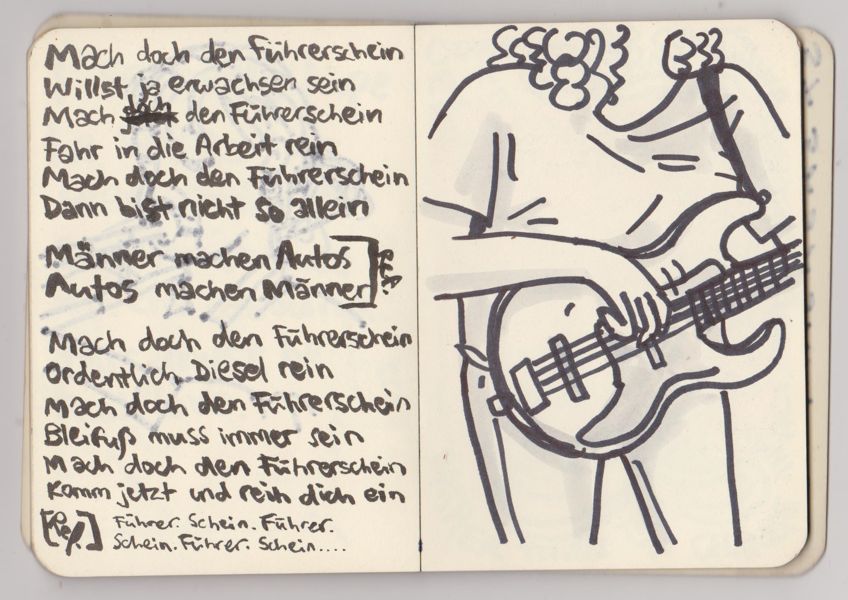 Mach doch den Führerschein
Willst ja erwachsen sein
Mach den Führerschein
Fahr in die Arbeit rein
Mach doch den Führerschein
Dann bist nicht so allein
Männer machen Autos
Autos machen Männer
REP.
Mach doch den Führerschein
Ordentlich Diesel rein
Mach doch den Führerschein
Bleifuß muss immer sein
Mach doch den Führerschein
Komm jetzt und reih dich ein
[Rep.] Führer. Schein. Führer.
Schein. Führer. Schein....